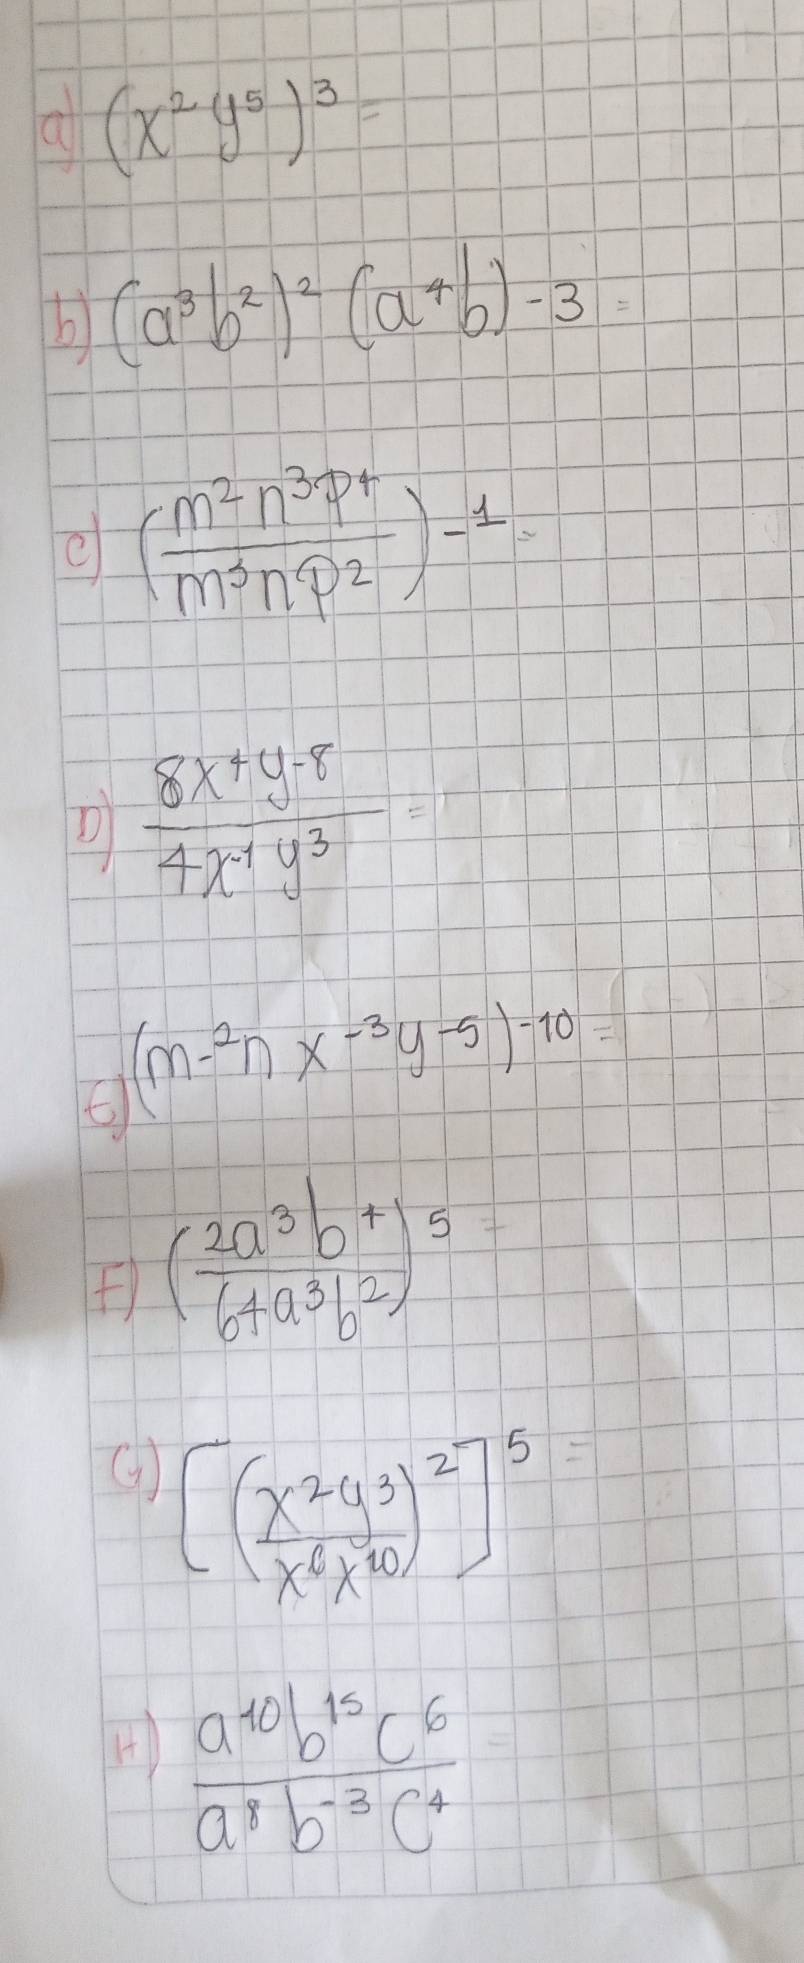 a) (x² y⁵)³ =
b) (a³b²)² (a⁴b)-3 =
c) (m² n³ p⁴ / m³ n p²)-1 =
D) 8x⁴y-8 / 4x⁻¹ y³ =
E) (m-²n x⁻³y-5)-10 =
F) (2a³b⁴ / 64a³b²)⁵ =
G) [(x²y³ / x⁶x¹⁰)²]⁵ =
H) a¹⁰b¹⁵c⁶ / a⁸ b⁻³ c⁴ =